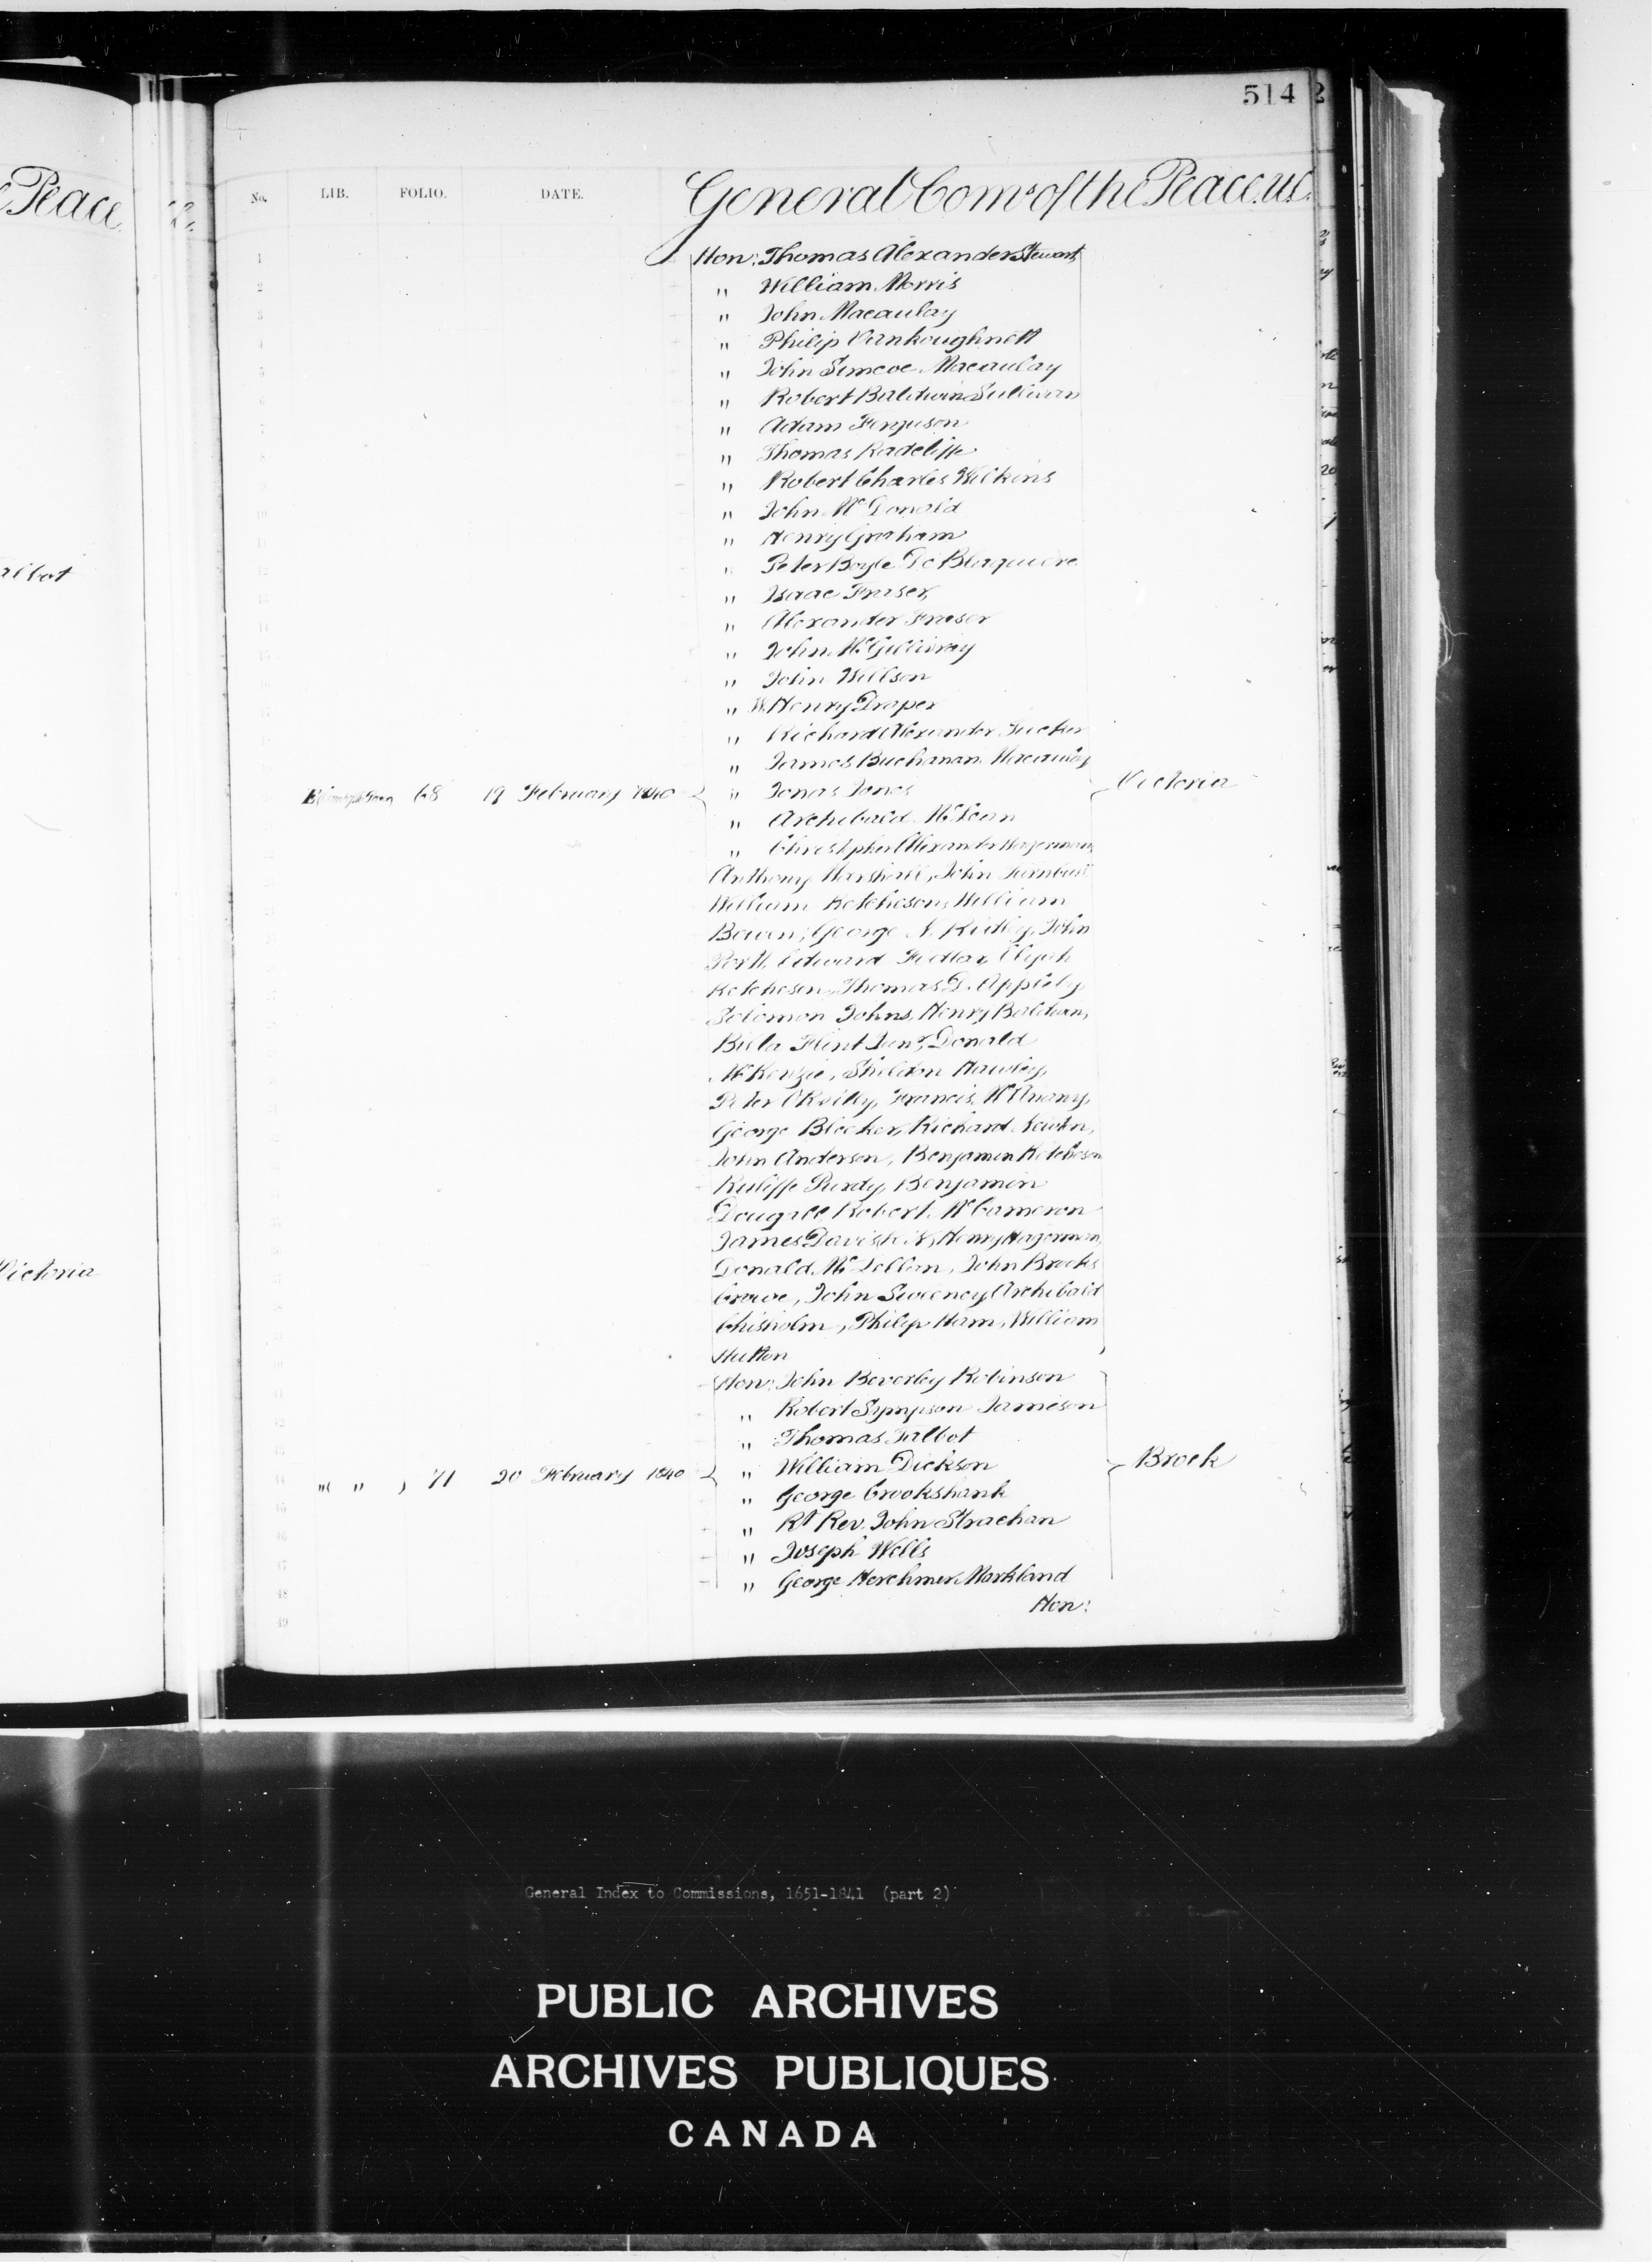 514
Peace
No. LIB. FOLIO. DATE. General Coms of the Peace. U.C.
Hon: Thomas Alexander Stewart
" William Morris
" John Macaulay
" Philip Vankoughnett
" John Simcoe Macaulay
" Robert Baldwin Sullivan
" Adam Ferguson
" Thomas Radcliffe
" Robert Charles Wilkins
" John McDonald
" Henry Graham
" Peter Boyle De Blaquiere
" Isaac Fraser
" Alexander Fraser
" John McGillivray
" John Willson
" W. Henry Draper
" Richard Alexander Tucker
" James Buchanan Macaulay
68 19 February 1840 " Jonas Jones Victoria
" Archibald McLean
" Christopher Alexander Hagerman
Anthony Marshall, John Turnbull
William Ketcheson, William
Bowen, George N. Ridley, John
Portt, Edward Fidlar, Elijah
Ketcheson, Thomas D. Appleby
Solomon Johns, Henry Baldwin,
Billa Flint Junr, Donald
McKenzie, Sheldon Hawley,
Peter O'Reilly, Francis McAnany,
George Bleeker, Richard Newton,
John Anderson, Benjamin Ketcheson
Ruliffe Purdy, Benjamin
Dougall, Robert McCameron
James Davis, Henry Hagerman,
Donald McLellan, John Brooks
Crowe, John Sweeney, Archibald
Chisholm, Philip Ham, William
Hutton
Hon: John Beverley Robinson
" Robert Sympson Jameson
" Thomas Talbot
" " 71 20 February 1840 " William Dickson Brock
" George Crookshank
" Rt Rev. John Strachan
" Joseph Wells
" George Herchmer Markland
Hon:
albot
Victoria
General Index to Commissions, 1651-1841 (part 2)
PUBLIC ARCHIVES
ARCHIVES PUBLIQUES
CANADA